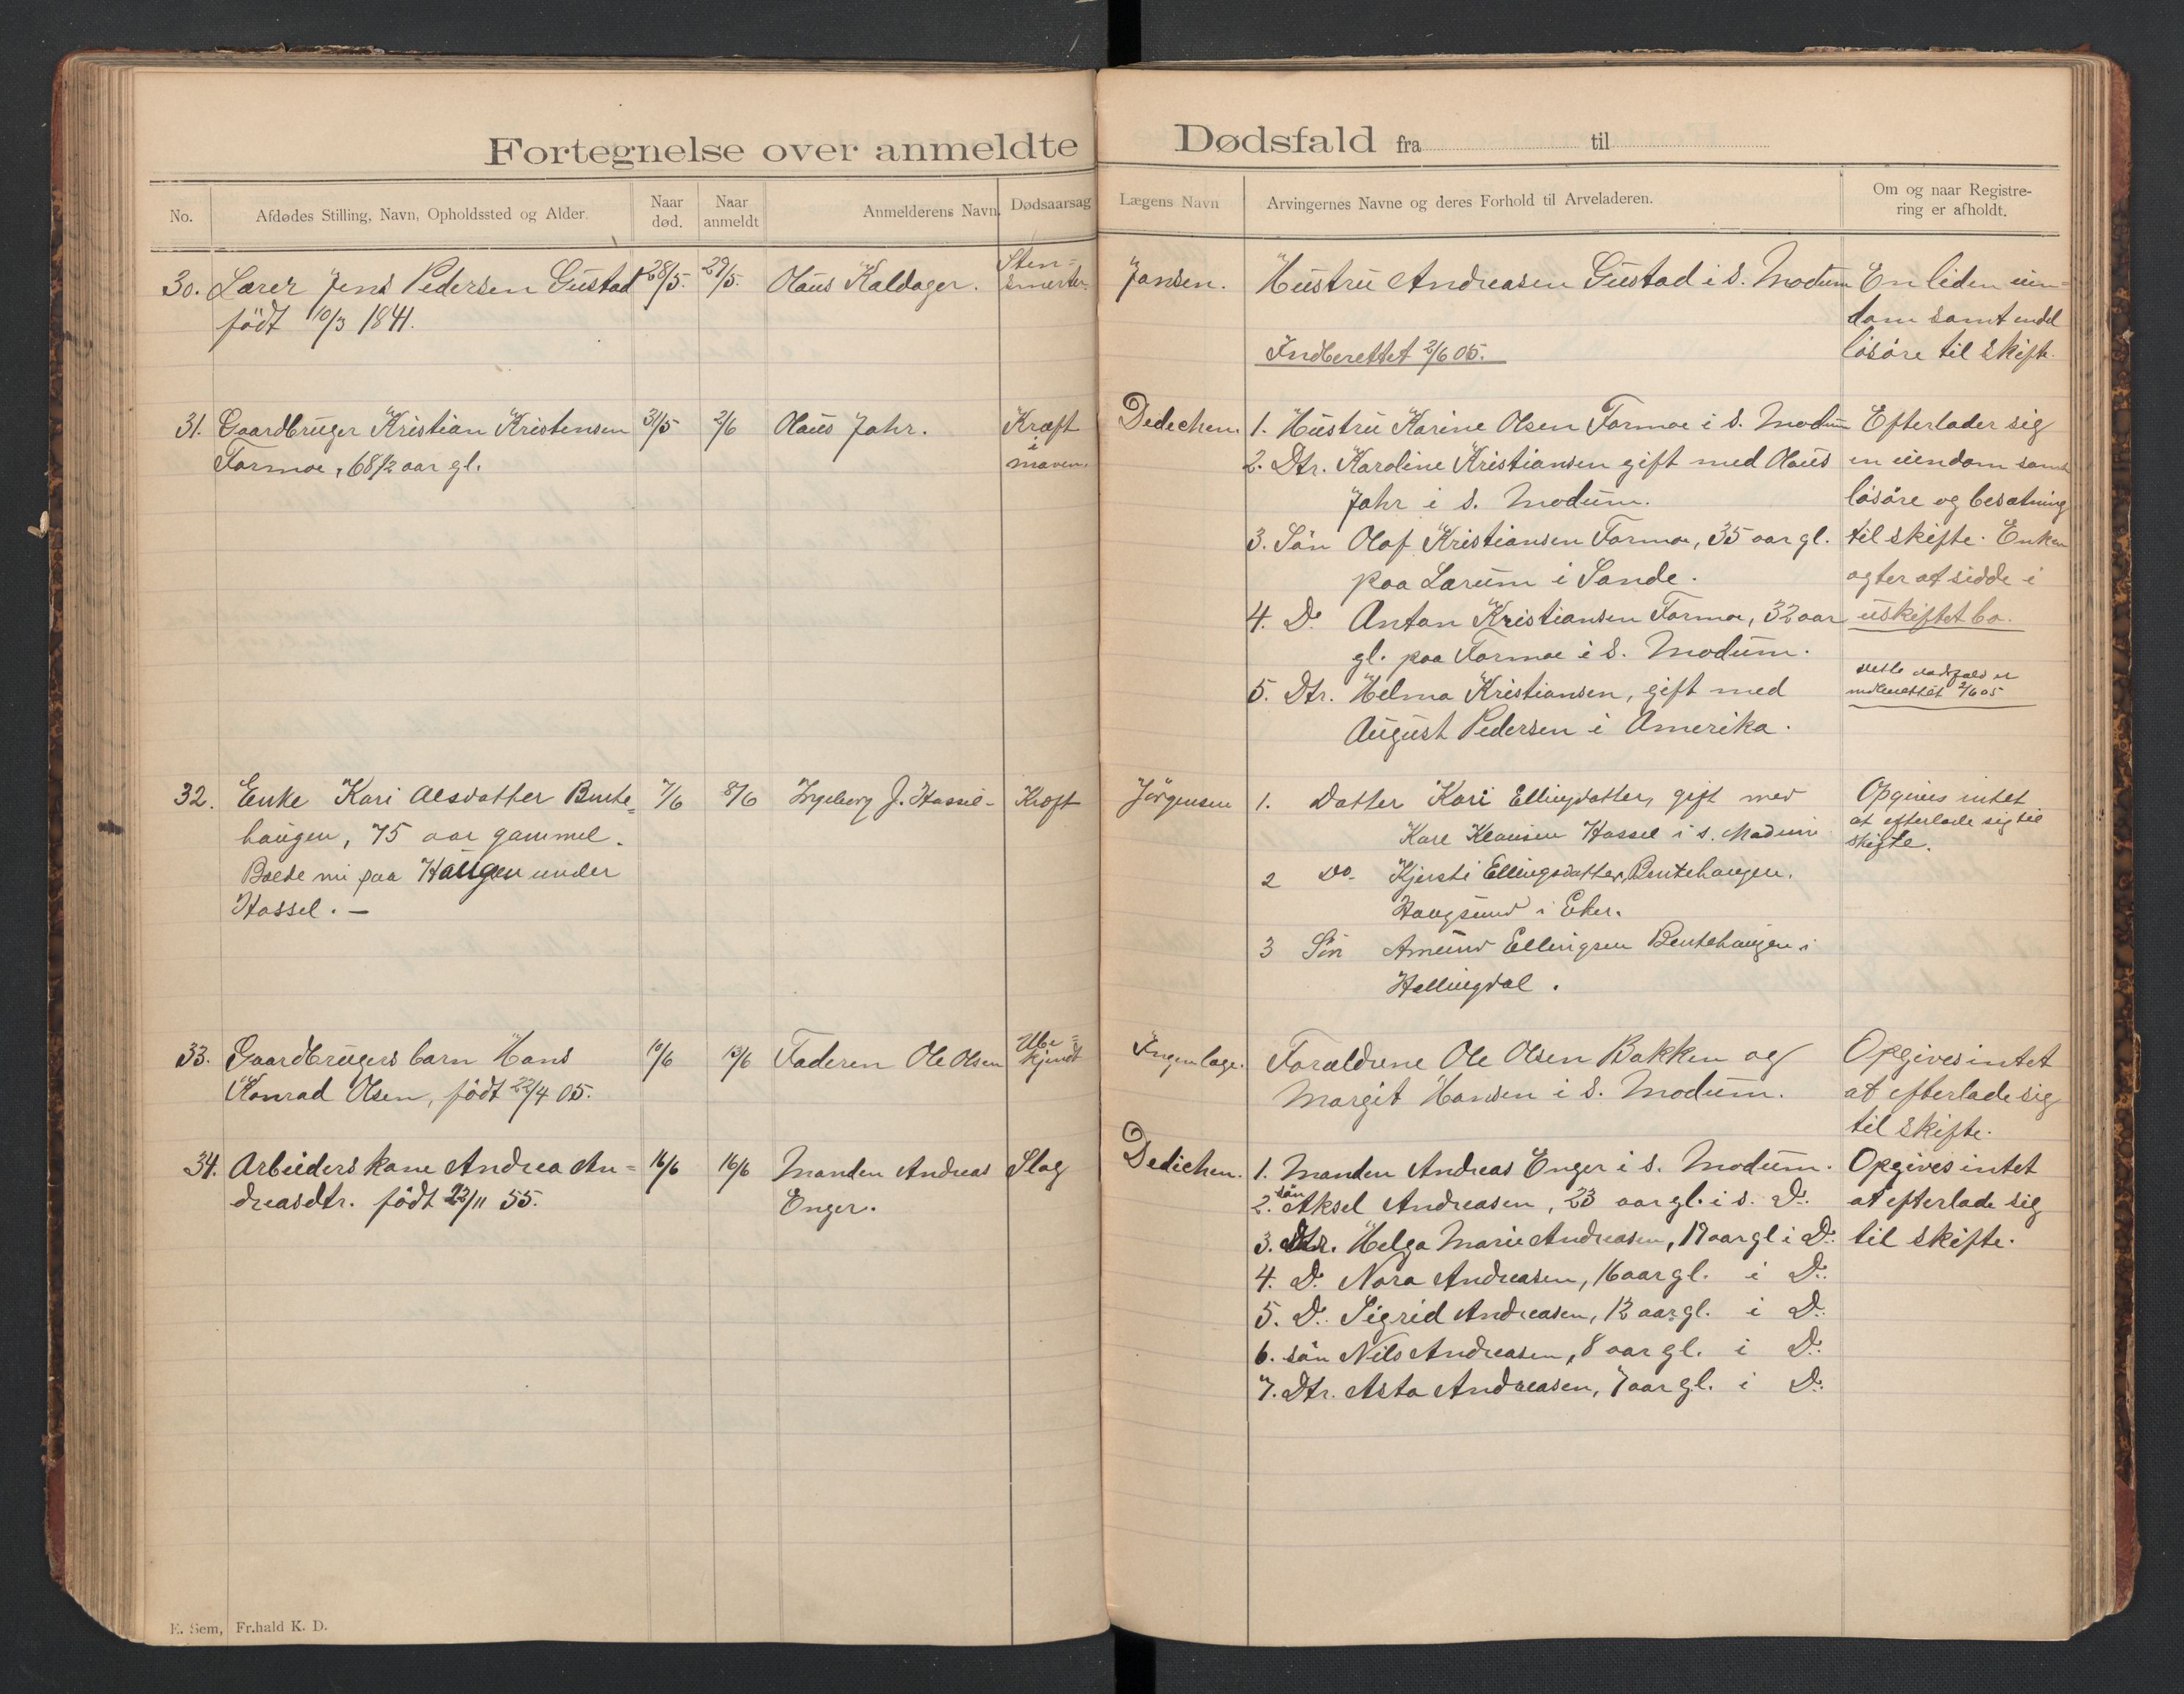 Fortegnelse over anmeldte Dødsfald fra til
No. Afdødes Stilling, Navn, Opholdssted og Alder. Naar død. Naar anmeldt Anmelderens Navn. Dødsaarsag Lægens Navn Arvingernes Navne og deres Forhold til Arveladeren. Om og naar Registrering er afholdt.
30. Lærer Jens Pedersen Gustad 28/5. 29/5. Olaus Kaldager. Sten-
født 10/3 1841. smerter.
Jansen. Hustru Andreasen Gustad i S. Modum
Indberettet 2/6 05.
En liden eien-
dom samt endel
løsøre til skifte.
31. Gaardbruger Kristian Kristensen 31/5 2/6 Olaus Jahr. Kræft
Formoe, 68 1/2 aar gl. i
maven.
Dedichen. 1. Hustru Karine Olsen Formoe i S. Modum
2. Dtr. Karoline Kristiansen gift med Olaus
Jahr i S. Modum.
3. Søn Olaf Kristiansen Formoe, 35 aar gl.
paa Lærum i Sande.
4. Do. Anton Kristiansen Formoe, 32 aar
gl. paa Formoe i S. Modum.
5. Dtr. Helma Kristiansen, gift med
August Pedersen i Amerika.
Efterlader sig
en eiendom samt
løsøre og besætning
til skifte. Enken
agter at sidde i
uskiftet bo.
Dette dødsfald er
indberettet 2/6 05
32. Enke Kari Olsdatter Bente- 7/6 8/6 Ingeborg J. Hassel- Kræft
haugen, 75 aar gammel.
Boede nu paa Haugen under
Hassel. —
Jørgensen 1. Datter Kari Ellingsdatter, gift med
Kare Klausen Hassel i S. Modum
2 Do. Kjersti Ellingsdatter, Bentehaugen.
Haugsund i Eker.
3 Søn Amund Ellingsen Bentehaugen i
Hallingdal.
Opgives intet
at efterlade sig til
skifte.
33. Gaardbrugers barn Hans 10/6 13/6 Faderen Ole Olsen Ube-
Konrad Olsen, født 22/4 05. kjendt
Ingen læge. Forældrene Ole Olsen Bakken og
Margit Hansen i S. Modum.
Opgives intet
at efterlade sig
til skifte.
34. Arbeiders kone Andrea An- 16/6 16/6 Manden Andreas Slag
dreasdtr. født 22/11 55. Enger.
Dedichen. 1. Manden Andreas Enger i S. Modum.
2. søn Aksel Andreasen, 23 aar gl. i S. Do.
3. Dtr. Helga Marie Andreasen, 19 aar gl i Do.
4. Do. Nora Andreasen, 16 aar gl. i Do.
5. Do. Sigrid Andreasen, 12 aar gl. i Do.
6. søn Nils Andreasen, 8 aar gl. i Do.
7. Dtr. Asta Andreasen, 7 aar gl. i Do.
Opgives intet
at efterlade sig
til skifte.
E. Sem, Fr.hald K. D.